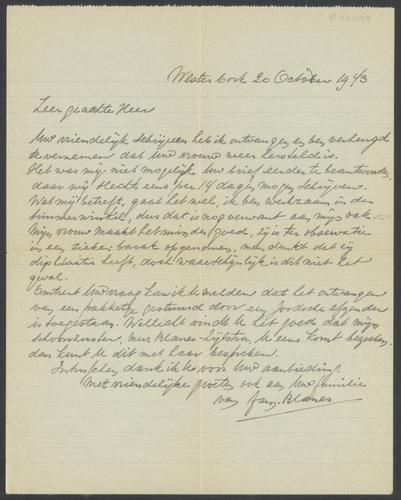 Westerbork 20 October 1943
Zeer geachte Heer
Uw vriendelijk schrijven heb ik ontvangen en ben verheugd
te vernemen dat Uw vrouw weer hersteld is.
Het was mij niet mogelijk Uw brief eerder te beantwoorden,
daar wij slechts eens per 14 dagen mogen schrijven.
Wat mij betreft, gaat het wel, ik ben werkzaam in de
timmerwinkel, dus dat is nog verwant aan mijn vak.
Mijn vrouw maakt het minder goed, zij is ter observatie
in een zieken-barak opgenomen, men denkt dat zij
diphteritis heeft, doch waarschijnlijk is dit niet het
geval.
Omtrent Uw vraag kan ik U melden dat het ontvangen
van een pakketje gestuurd door een Joodsche afzender
is toegestaan. Wellicht vindt U het goed dat mijn
schoonzuster, mevr Blanes-Lijfstra, U eens komt bezoeken,
dan kunt U dit met haar bespreken.
Intusschen dank ik U voor Uw aanbieding.
Met vriendelijke groeten ook aan Uw familie
van Blanes